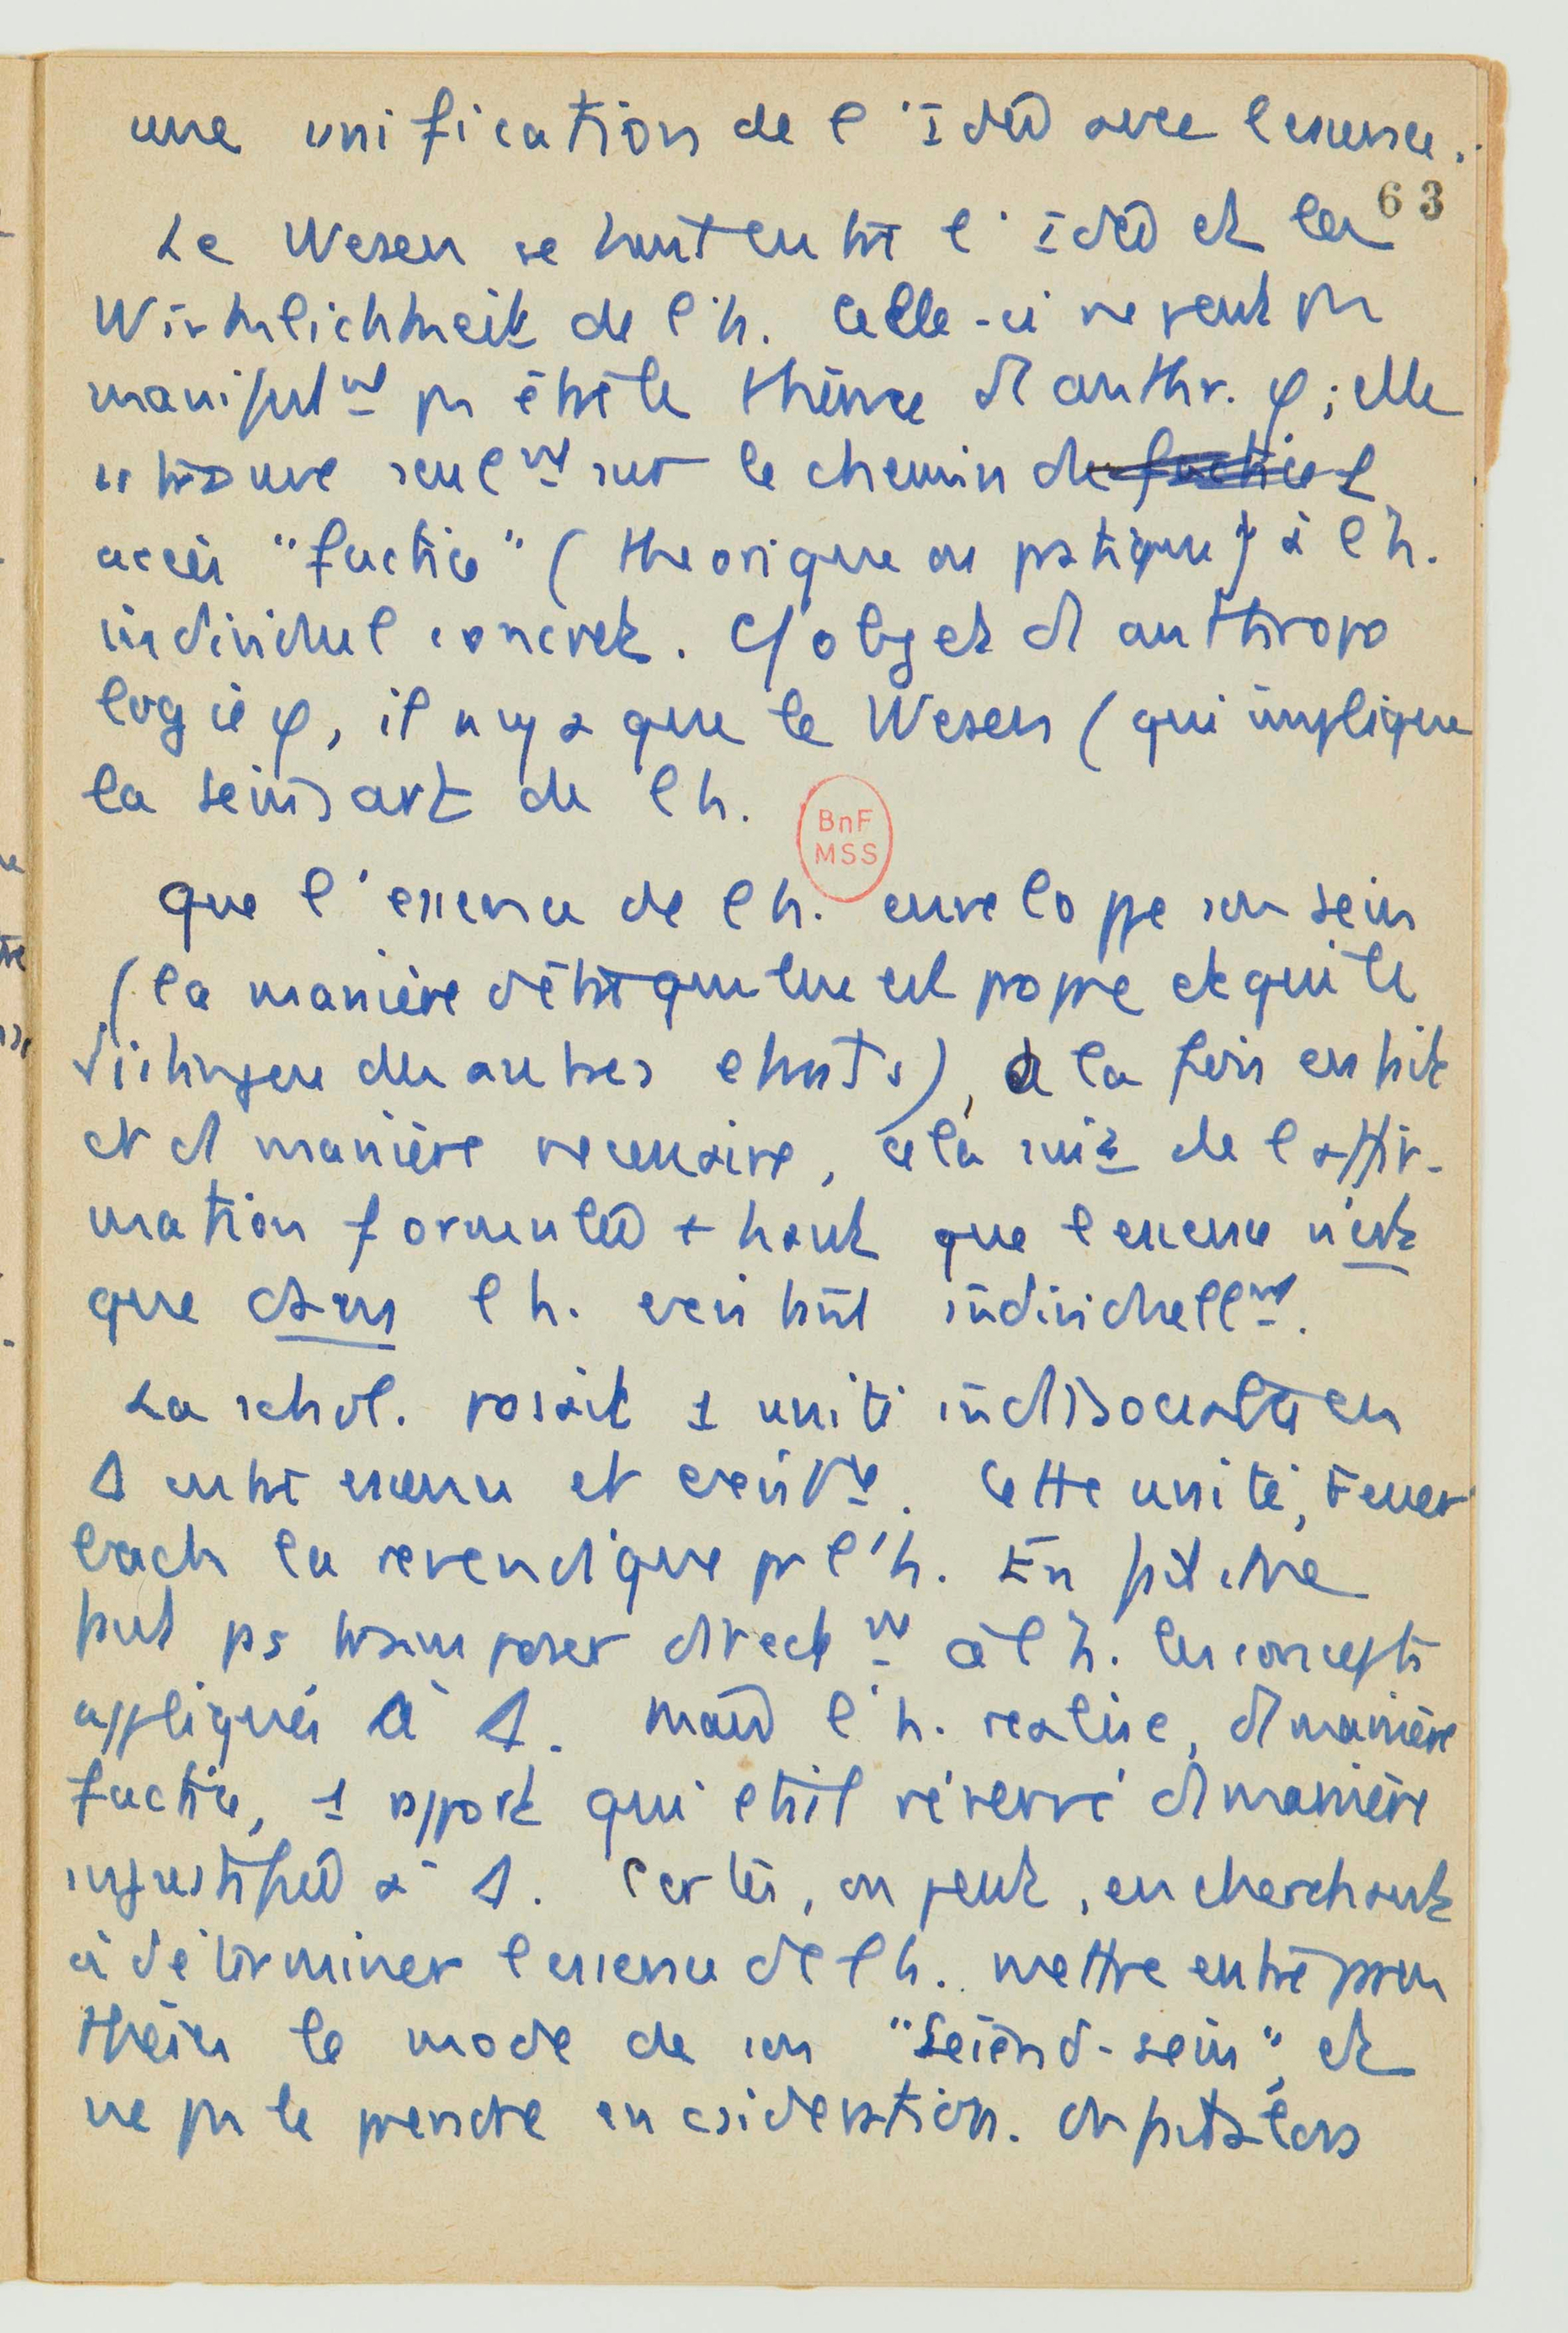 une unification de l'Idée avec l'essence.
63
Le Wesen se tient entre l'Idée et la
Wirklichkeit de l'h. Celle-ci ne peut pas
manifestmt pas être le thème d anthr. φ ; elle
se trouve seulmt sur le chemin de l
accès "factice" (théorique ou pratique) à l'h.
individuel concret. C/ objet d anthropo
logie φ, il n'y a que le Wesen (qui implique
la seinsart de l h.
BnF
MSS
que l'essence de l h. enveloppe son sein
(la manière d'être qui lui est propre et qui le
distingue des autres étants), à la fois en fait
et d manière nécessaire, cela suit de l affir-
mation formulée + haut que l essence n'est
que dans l h. existant individuellmt.
La schol. posait 1 unité indissociable en
Δ entre essence et existce. Cette unité, Feuer
bach la revendique pr l'h. En fait, on ne
peut ps transposer directmt à l h. les concepts
appliqués à Δ. Mais l'h. réalise, d manière
factice, 1 rapport qui était réservé d manière
injustifiée à Δ. Certes, on peut, en cherchant
à déterminer l essence de l h. mettre entre paren
thèses le mode de son "Seiend-sein", et
ne pas le prendre en csidération. On peut alors